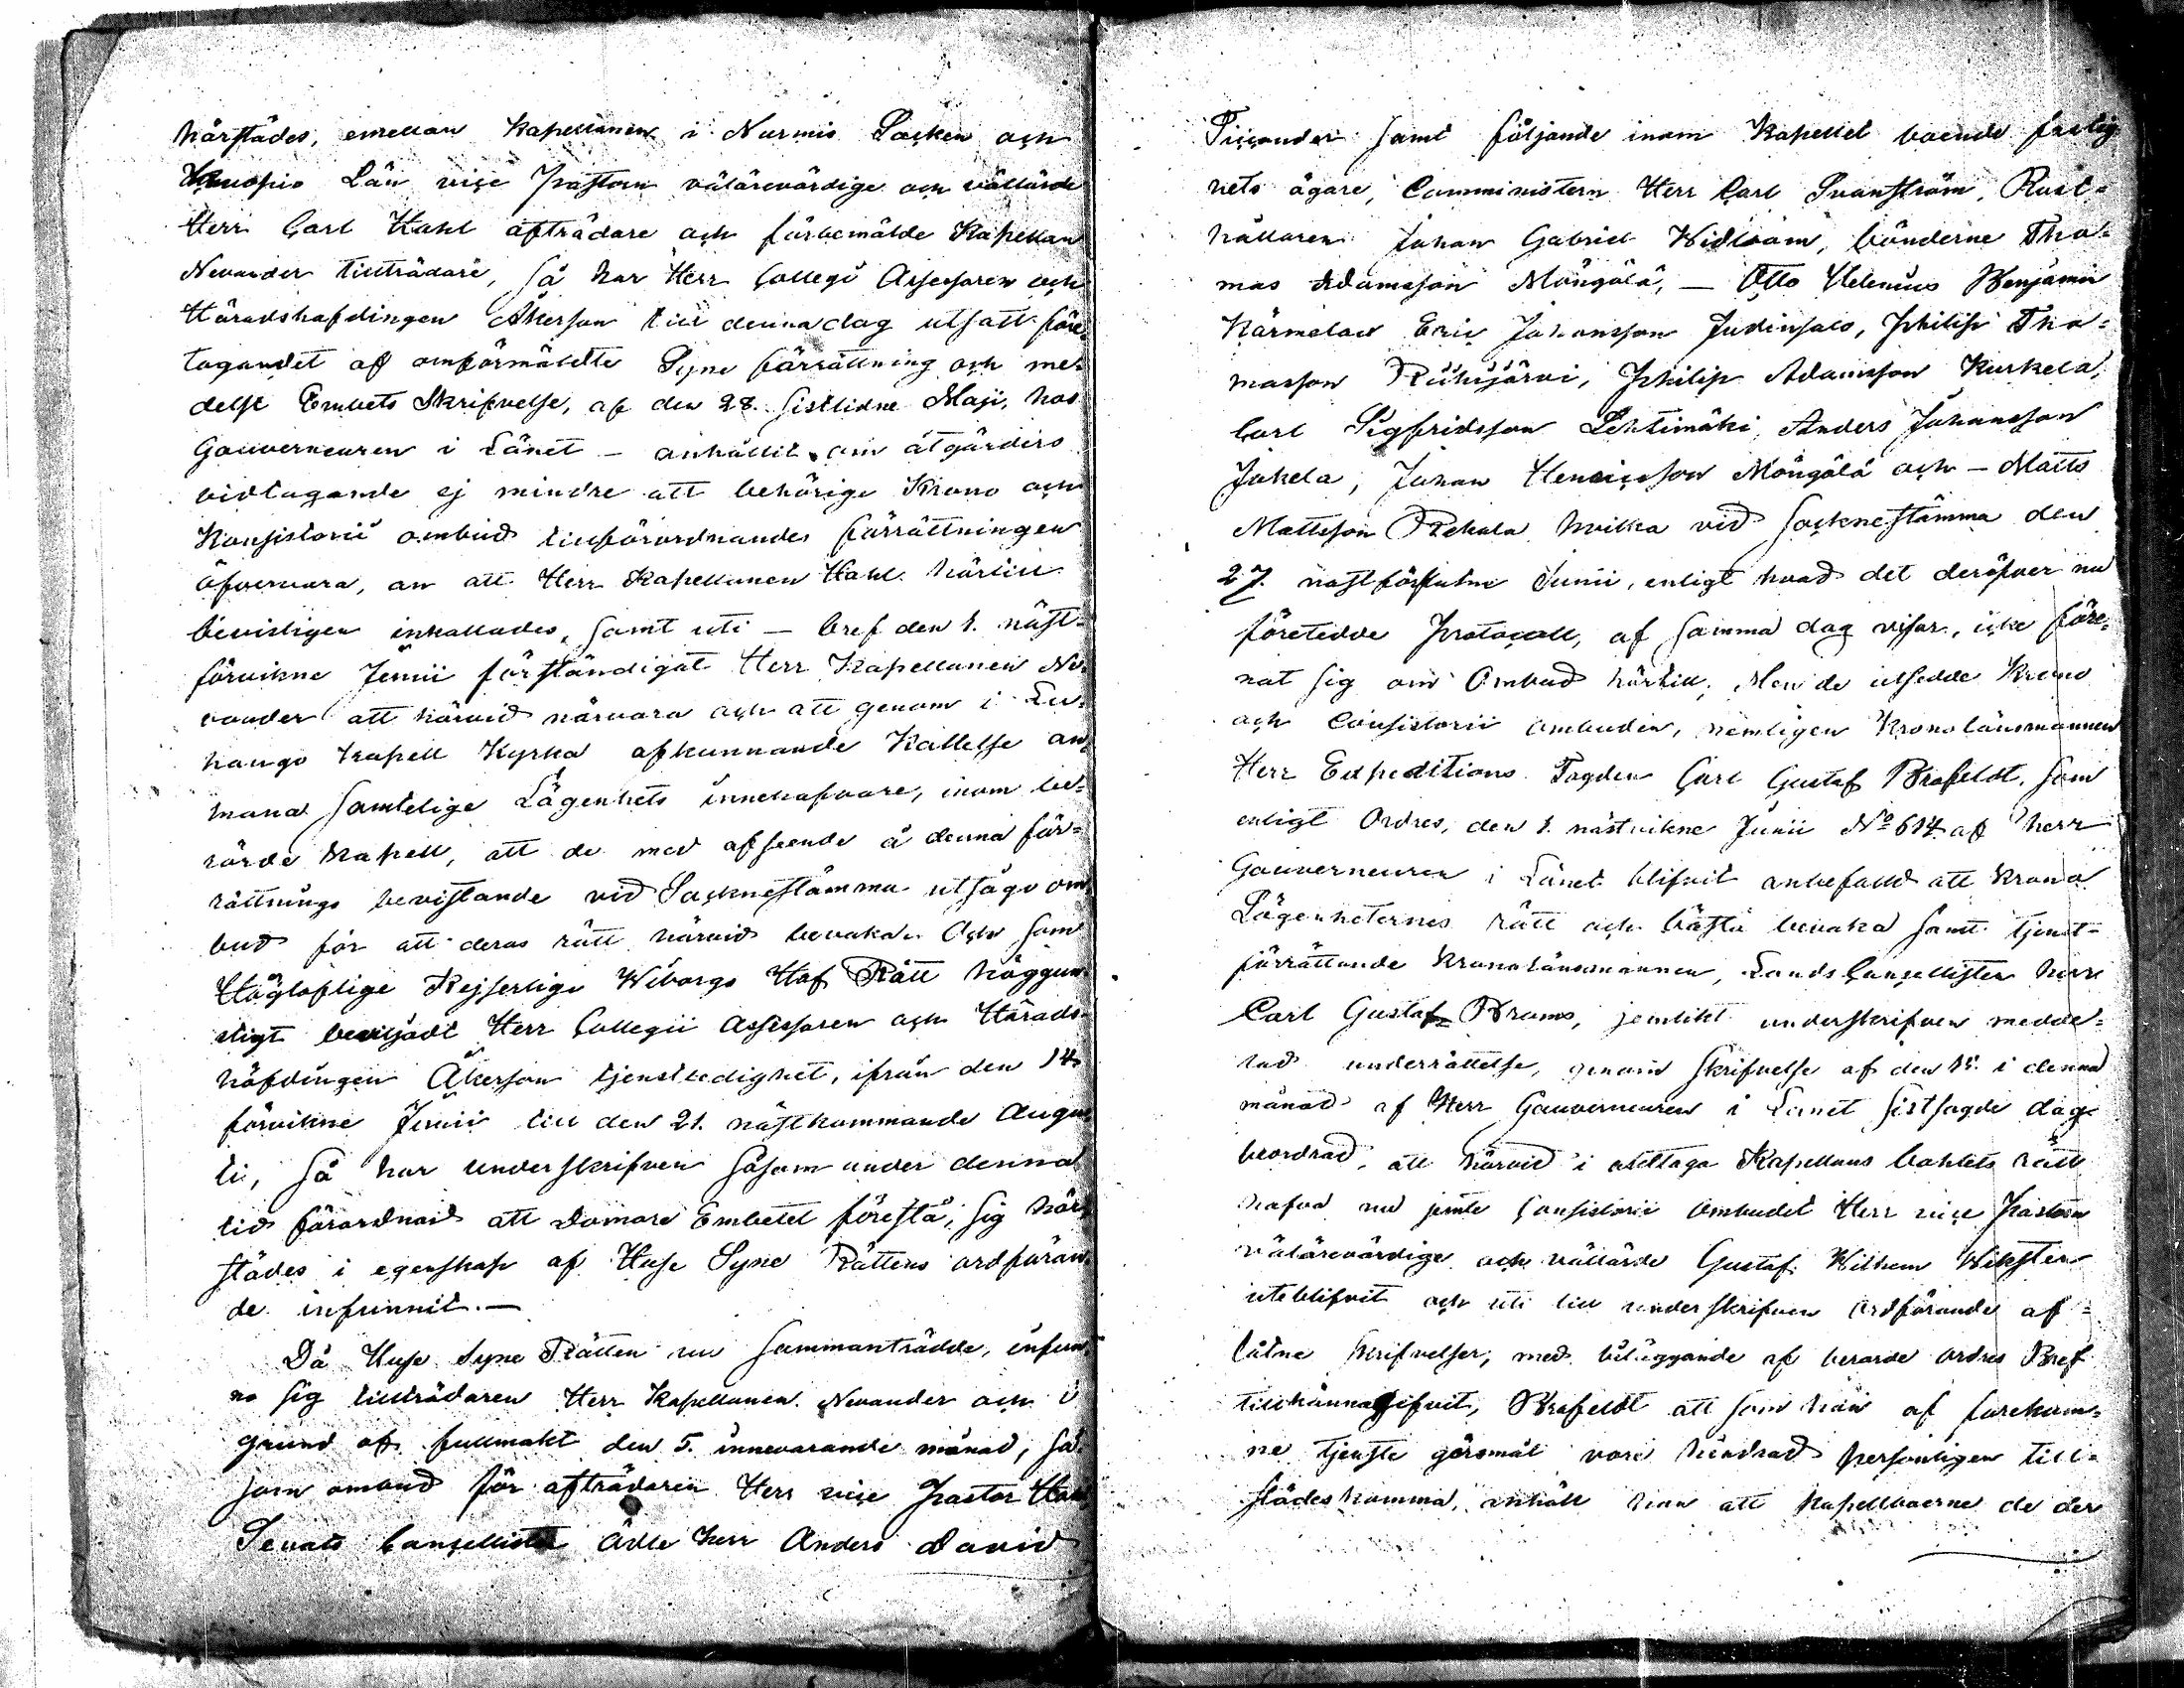 härstädes, emellan Kapellanen i Nurmis Socken och
Kuopio Län vice Pastorn välärevördige och vällärde
Herr Carl Hahl afträdare och förbemälde Kapellan
Nevander tillträdare, så har Herr Collegi Assessoren och
Häradshöfdingen Åkerson till denna dag utsatt före¬
tagandet af omförmäldte Syne förrättning och me¬
delst Embets Skrifvelse, af den 28 sistlidne Maji, hos
Gouverneuren i Länet – anhållit om åtgärders
vidtagande ej mindre att behörige Krono och
Konsistorii ombud tillförordnandes förrättningen
öfvervara, än att Herr Kapellanen Hahl härtill
bevisligen inkallades, samt uti – bref den 1. näst¬
förvikne Junii förständigat Herr Kapellanen Ne¬
vander att härvid närvara och att genom i Lu¬
hango Kapell Kyrka afkunnande Kallelse an¬
mana samtelige Lägenhets innehafvare, inom be¬
rörde Kapell, att de med afseende å denna för¬
rättnings bevistande vid Socknestämma utsågo om
bud för att deras rätt härvid bevaka. Och som
Högloflige Kejserlige Wiborgs Hof Rätt höggun
stigt beviljadt Herr Collegii Assessoren och Härads¬
höfdingen Åkerson tjenstledighet, ifrån den 14
förvikne Junii till den 21. nästkommande Augus
ti, så har underskrifven såsom under denna
tid förordnad att Domare Embetet förestå, sig här
städes i egenskap af Huse Syne Rättens ordföran
de infunnit. –
Då Huse Syne Rätten nu sammanträdde, infun
no sig tillträdaren Herr Kapellanen Nevander och i
grund af fullmakt den 5. innevarande månad, så¬
som ombud för afträdaren Herr vice Pastor Hahl
Senats Cancellisten Ädle Herr Anders David
Ticcander samt följande inom Kapellet boende fastig
hets ägare, Comministern Herr Carl Svanström, Rust¬
hållaren Johan Gabriel Widbom, bönderne Tho¬
mas Adamsson Möngälä, – Otto Helenius Benjamin
Kärmelac Eric Johansson Judinsalo, Philip Tho¬
masson Riihijärvi, Philip Adamsson Kurkela,
Carl Sigfridsson Lehtimäki, Anders Johansson
Jokela, Johan Henricsson Möngälä och – Matts
Mattsson Pekala hvilka vid Socknestämma den
27. nästförflutne Junii, enligt hvad det deröfver nu
företedde Protocoll, af samma dag visar, icke före¬
nat sig om Ombud härtill; Men de utsedde Krono
och Consistorii ombuden, nemligen Kronolänsmannen
Herr Expeditions Fogden Carl Gustaf Brofeldt, som
enligt Ordres, den 1. nästvikne Junii No 614 af Herr
Gouverneuren i Länet blifvit anbefalld att Krono
Lägenheternes rätt och bästa bevaka samt tjenst¬
förrättande Kronolänsmannen, Lands Cancellisten Herr
Carl Gustaf Brams, jemlikt underskrifven medde¬
lad underrättelse, genom skrifvelse af den 15. i denna
månad af Herr Gouverneuren i Länet sistsagde dag
beordrad, att härvid i akttaga Kapellans bohlets rätt
hafva nu jemte Consistorii Ombudet Herr vice Pastorn
välärevördige och vällärde Gustaf Wilhem Wiksten
uteblifvit och uti till underskrifven Ordförande af¬
låtne skrifvelser, med biläggande af berorde ordres Bref
tillkännagifvit, Brofeldt att som han af förekom¬
ne tjenste göromål vore hindrad personligen till¬
städes komma, anhöll han att Kapellboerne de der